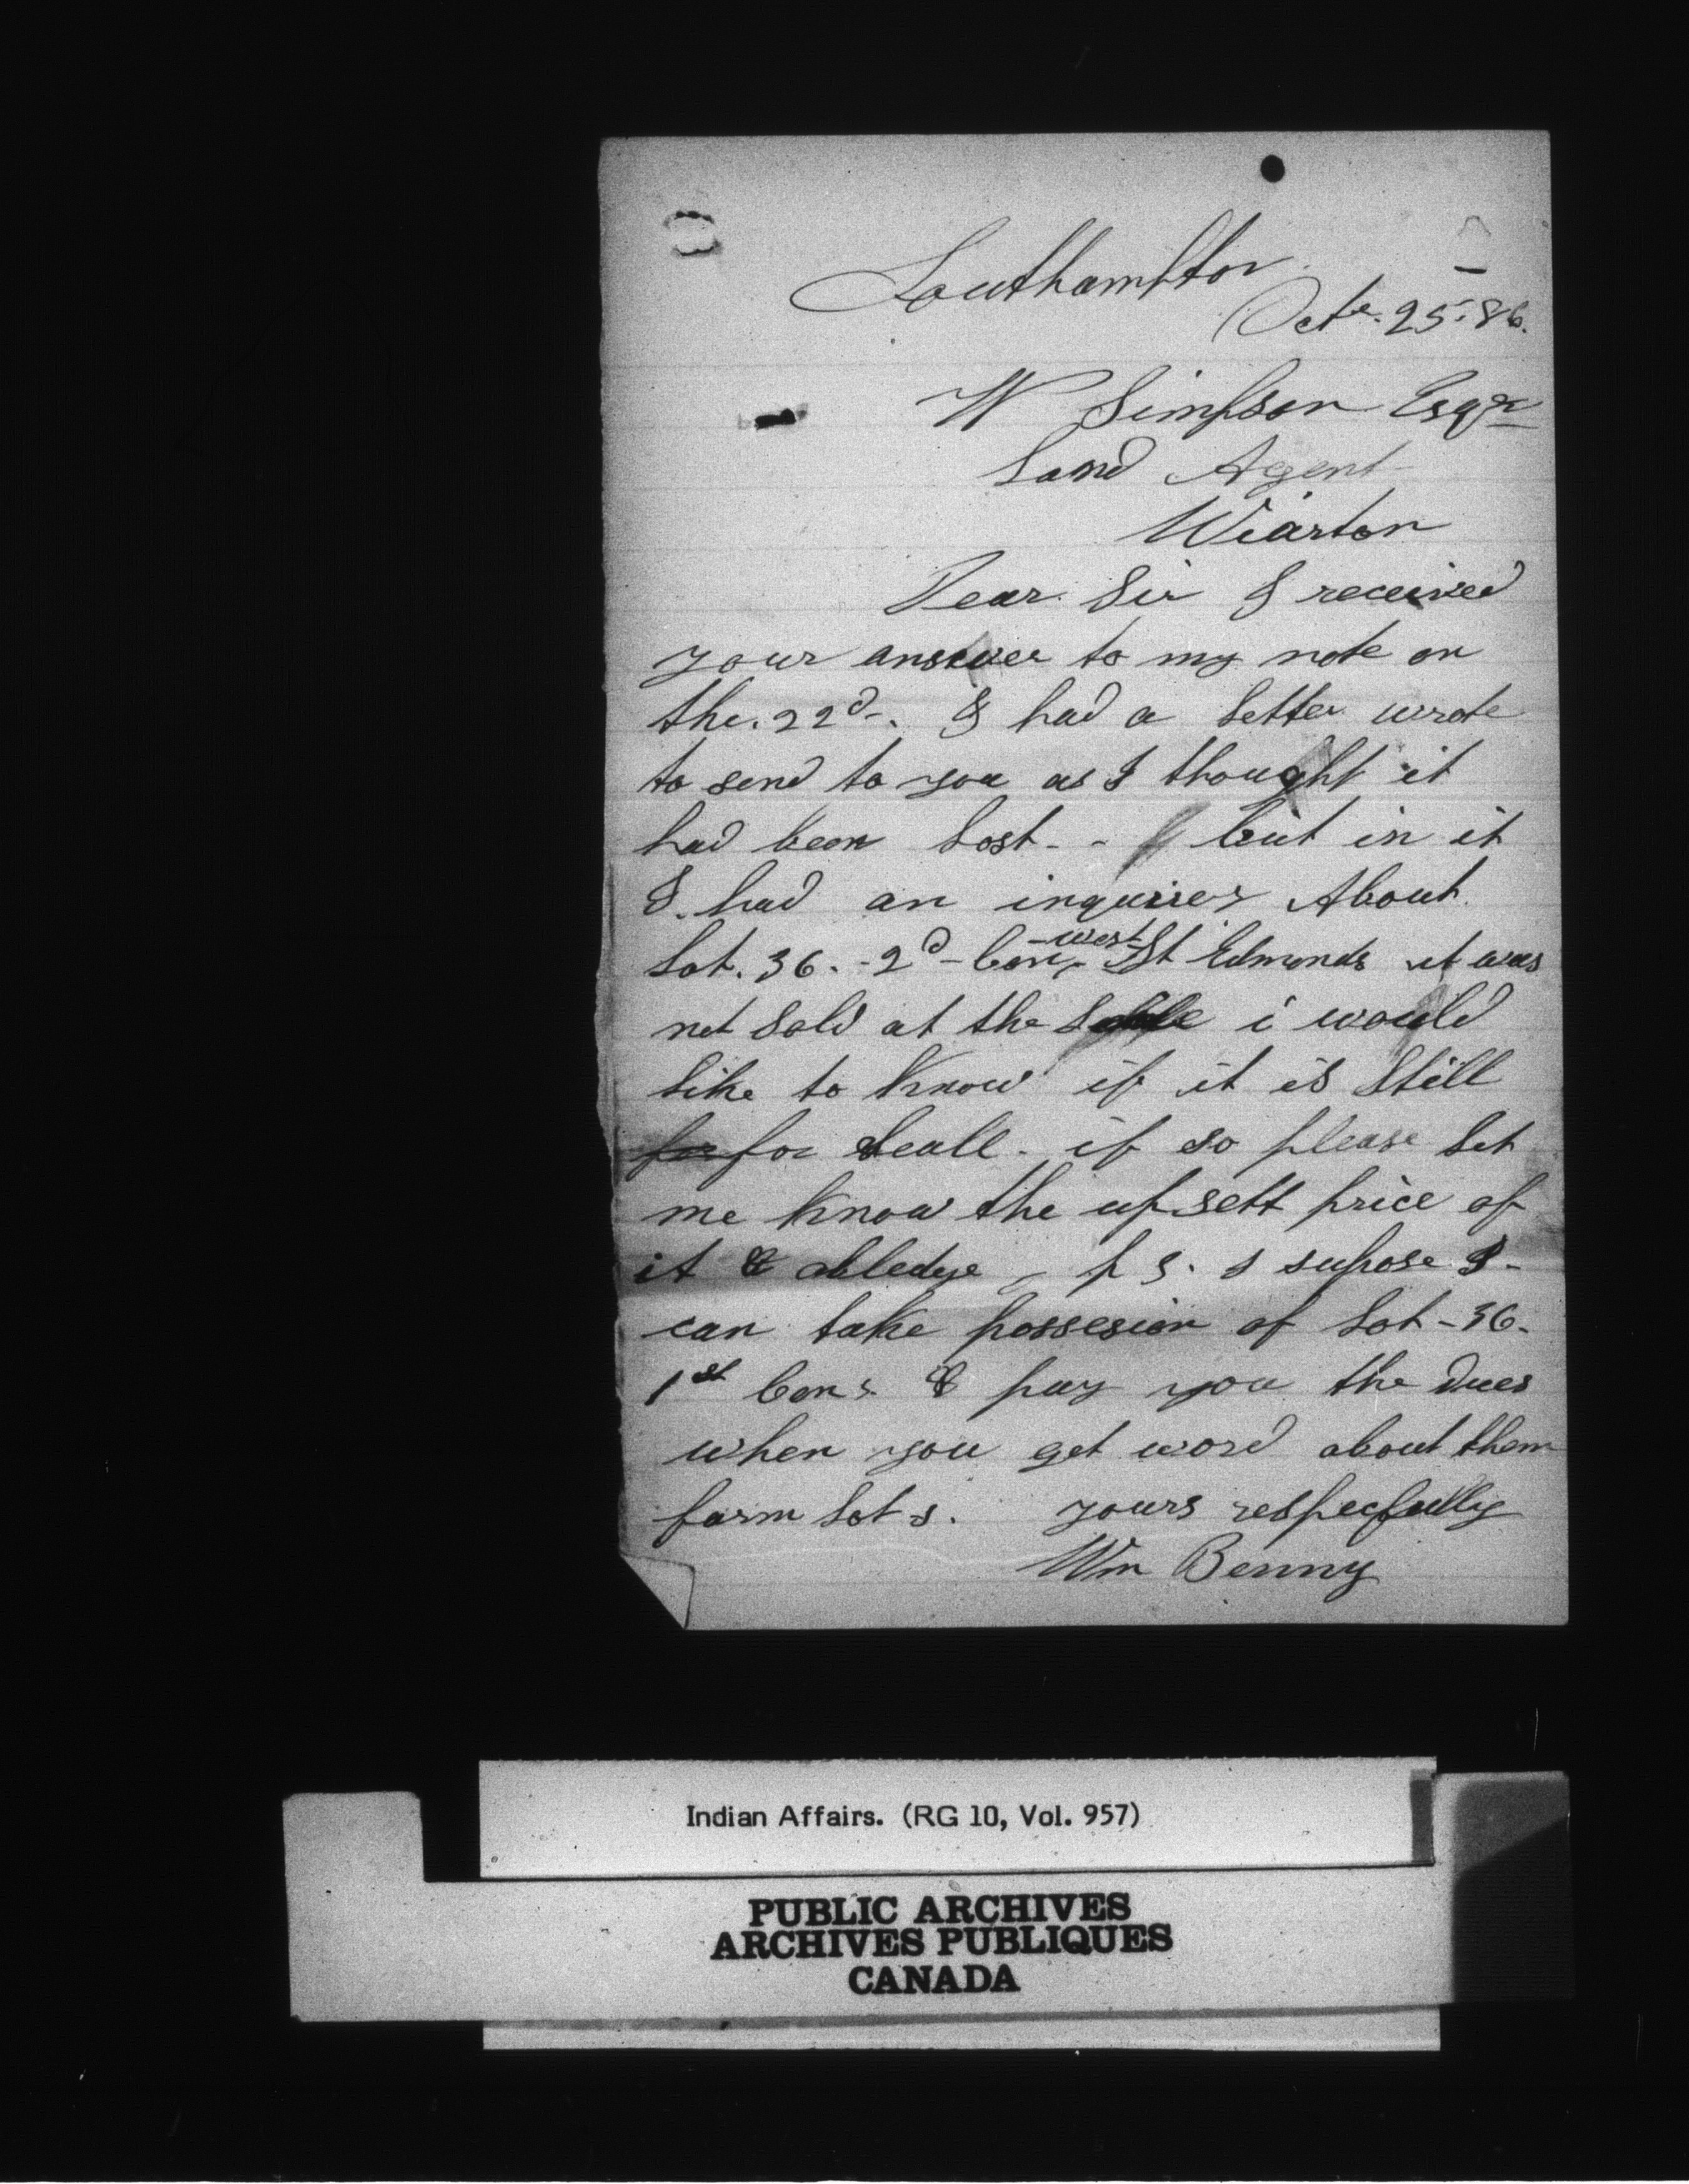 Southampton
Octr. 25. 86.
W Simpson Esqr
Land Agent
Wiarton
Dear Sir I received
your answer to my note on
the. 22d-. I had a letter wrote
to send to you as I thought it
had been lost - - but in it
I. had an inquirey About
Lot. 36. - 2d - Con, -west- St Edmonds it was
not sold at the i would
like to know if it is still
for for seall. if so please let
me know the upsett price of
it & obledge, p s. I supose I-
can take possesion of Lot - 36-
1st Cons & pay you the dues
when you get word about them
farm lots. yours respecfully
Wm Benny
Indian Affairs. (RG 10, Vol. 957)
PUBLIC ARCHIVES
ARCHIVES PUBLIQUES
CANADA